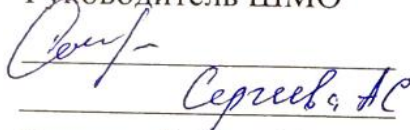 Руководитель ШМО
Сергеева АС